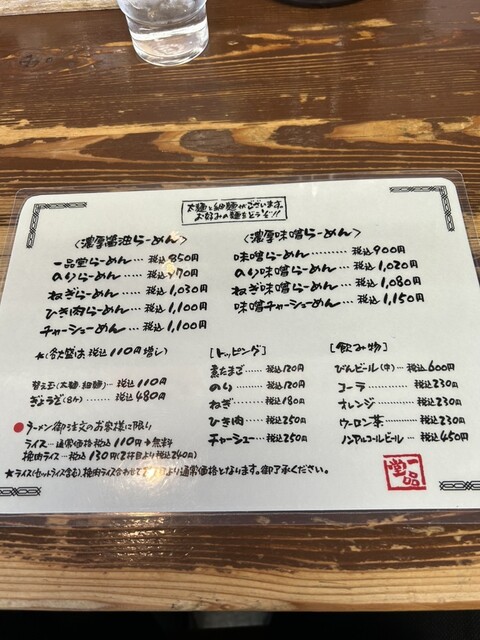 太麺と細麺がございます。
お好みの麺をどうぞ!!
〈濃厚醤油らーめん〉
一品堂らーめん… 税込850円
のりらーめん… 税込970円
ねぎらーめん… 税込1,030円
ひき肉らーめん… 税込1,100円
チャーシューめん… 税込1,100円
〈濃厚味噌らーめん〉
味噌らーめん………… 税込900円
のり味噌らーめん… 税込1,020円
ねぎ味噌らーめん… 税込1,080円
味噌チャーシューめん… 税込1,150円
★(各大盛は 税込110円増し)
替え玉(太麺・細麺)… 税込110円
ぎょうざ(5ケ)……… 税込480円
●ラーメン御注文のお客様に限り
ライス…通常価格税込110円→無料
挽肉ライス…税込130円(2杯目より税込240円)
★ライス(セットライス含む)、挽肉ライス合わせて
より通常価格となります。御了承ください。
[トッピング]
煮たまご… 税込120円
のり……… 税込120円
ねぎ……… 税込180円
ひき肉…… 税込250円
チャーシュー… 税込250円
[飲み物]
びんビール(中)… 税込600円
コーラ……… 税込230円
オレンジ…… 税込230円
ウーロン茶… 税込230円
ノンアルコールビール… 税込450円
一品堂